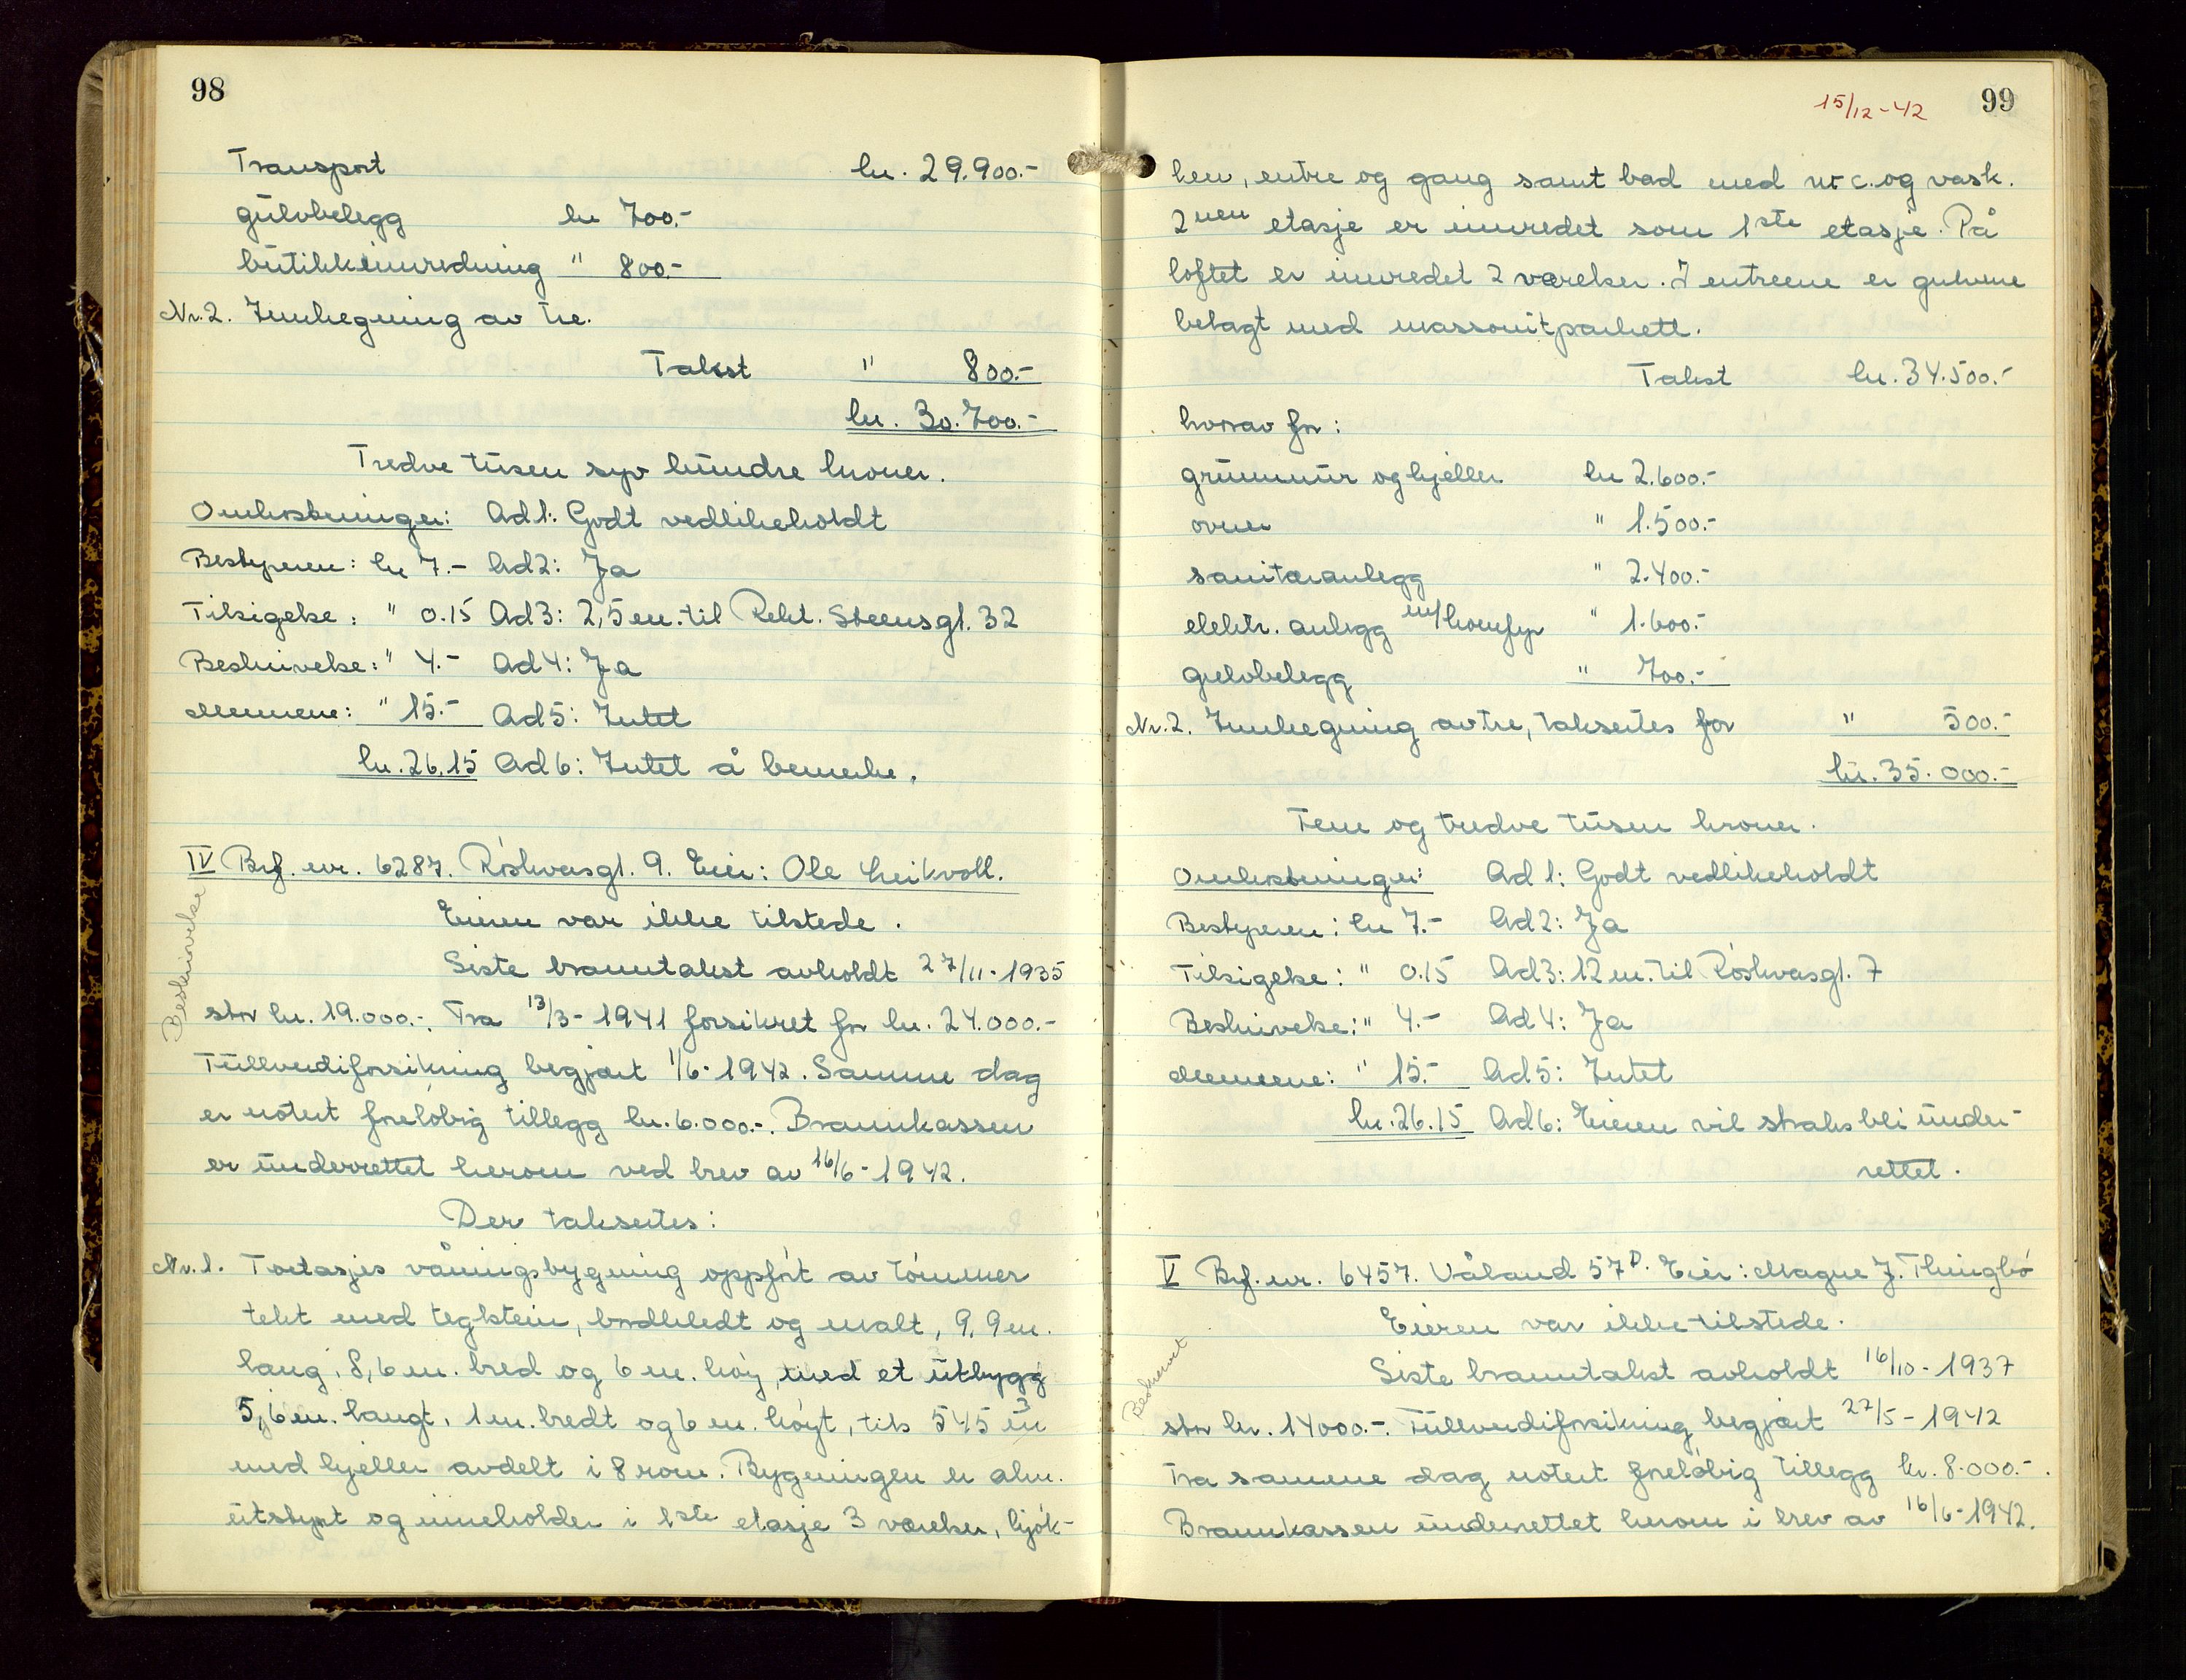 98
Transport kr. 29.900.-
gulvbelegg kr 700.-
butikkinnredning " 800.-
Nr. 2. Innhegning av tre.
Takst " 800.-
kr. 30.700.-
Tredve tusen syv hundre kroner.
Omkostninger: Ad 1: Godt vedlikeholdt
Bestyreren: kr 7.- Ad 2: Ja
Tilsigelse: " 0.15 Ad 3: 2,5 m. til Rekt. Steensgt. 32
Beskrivelse: " 4.- Ad 4: Ja
Mennene: " 15.- Ad 5: Intet
kr. 26.15 Ad 6: Intet å bemerke.
IV Brf. nr. 6287. Röskvasgt. 9. Eier: Ole Leikvoll.
Eieren var ikke tilstede.
Beskrivelse
Siste branntakst avholdt 27/11-1935
stor kr. 19.000.-. Fra 13/3-1941 forsikret for kr. 24.000.-
Fullverdiforsikring begjært 1/6-1942. Samme dag
er notert foreløbig tillegg kr. 6.000.-. Brannkassen
er underrettet herom ved brev av 16/6-1942.
Der takseres:
Nr. 1. Toetasjes våningsbygning oppført av tömmer
tekt med teglstein, bordkledt og malt, 9,9 m.
lang, 8,6 m. bred og 6 m. höy, med et utbygg
5,6 m. langt, 1 m. bredt og 6 m. höyt, tils 545 m3
med kjeller avdelt i 8 rom. Bygningen er alm.
utstyrt og inneholder i 1ste etasje 3 værelser, kjök-
15/12-42 99
ken, entre og gang samt bad med w.c. og vask.
2nen etasje er innredet som 1ste etasje. På
loftet er innredet 2 værelser. I entreene er gulvene
belagt med massonitparkett.
Takst kr. 34.500.-
hvorav for:
grunnmur og kjeller kr 2.600.-
ovner " 1.500.-
sanitæranlegg " 2.400.-
elektr. anlegg m/komfyr " 1.600.-
gulvbelegg " 700.-
Nr. 2. Innhegning av tre, takseres for " 500.-
kr. 35.000.-
Fem og tredve tusen kroner.
Omkostninger: Ad 1: Godt vedlikeholdt
Bestyreren: kr 7.- Ad 2: Ja
Tilsigelse: " 0.15 Ad 3: 12 m. til Röskvasgt. 7
Beskrivelse: " 4.- Ad 4: Ja
Mennene: " 15.- Ad 5: Intet
kr. 26.15 Ad 6: Eieren vil straks bli under-
rettet.
V Brf. nr. 6457. Våland 57D. Eier: Magne J. Thingbö
Eieren var ikke tilstede.
Beskrevet
Siste branntakst avholdt 16/10-1937
stor kr. 14000.-. Fullverdiforsikring begjært 27/5-1942
Fra samme dag notert foreløbig tillegg kr. 8.000.-.
Brannkassen underrettet herom i brev av 16/6-1942.